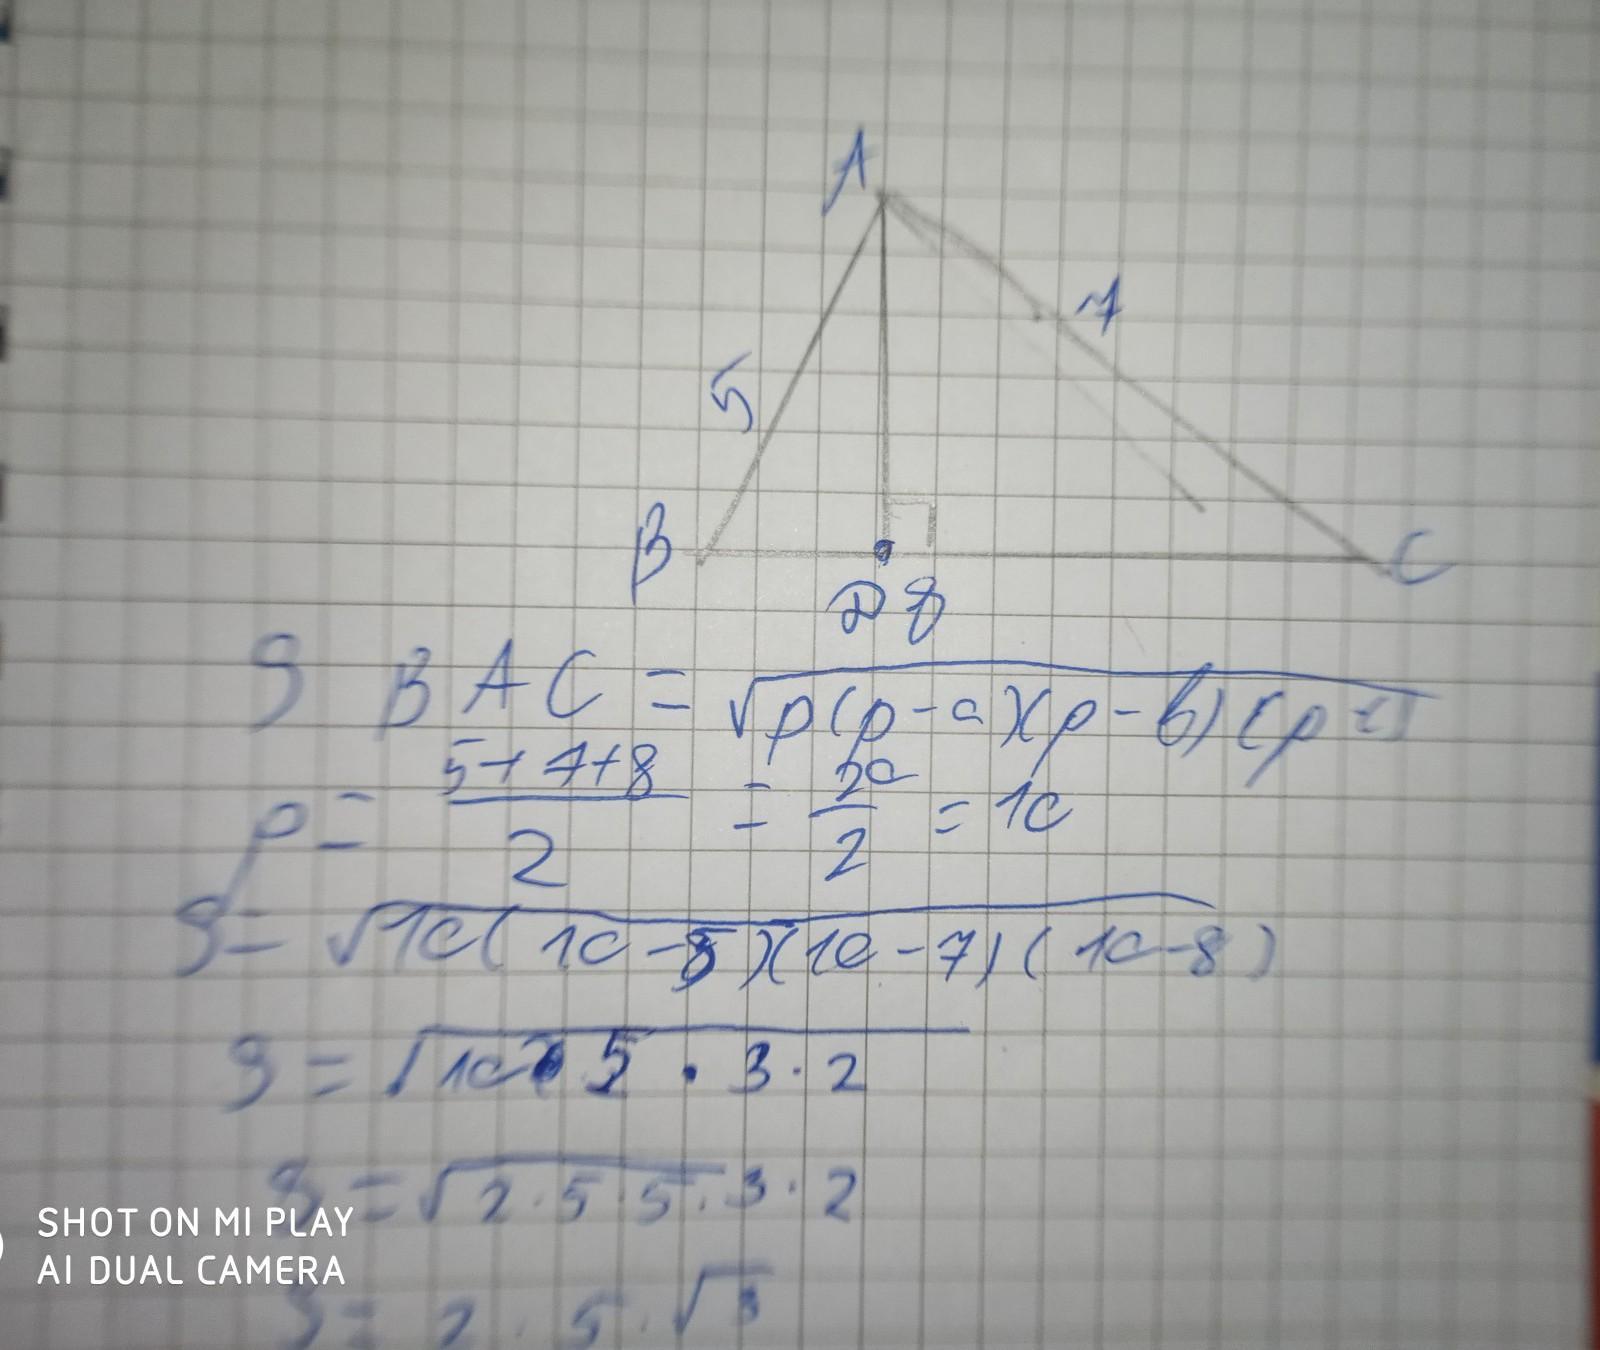 A
7
5
B
C
D 8
S BAC = √p(p-a)(p-b)(p-c)
p = 5+7+8/2 = 20/2 = 10
S = √10(10-5)(10-7)(10-8)
S = √10·5·3·2
S = √2·5·5·3·2
S = 2·5·√3
SHOT ON MI PLAY
AI DUAL CAMERA